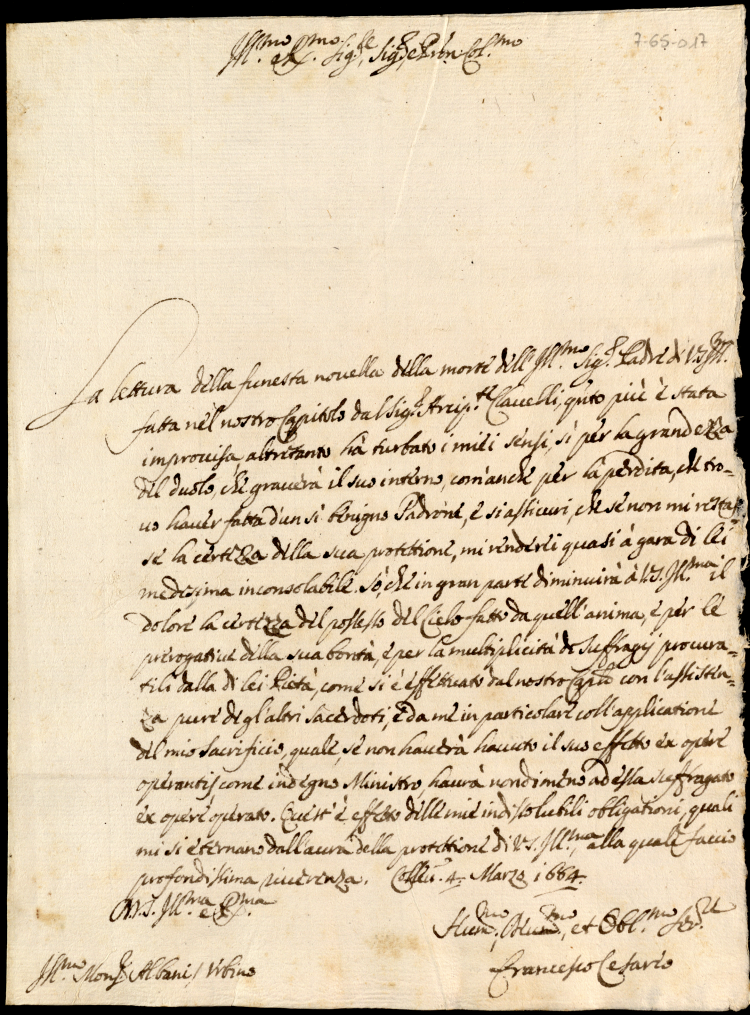 7-65-017
Ill.mo e R.mo Sig.re Sig.re e Pron Col.mo
La lettura della funesta novella della morte dell'Ill.mo Sig.r Padre di V.S. Ill.
fatta nel nostro Capitolo dal Sig.r Arcip.te Clavelli, q.nto più è stata
improvisa altretanto hà turbato i miei sensi, sì per la grandezza
del duolo, che graverà il suo interno, com'anche per la perdita, che tro-
vo haver fatta d'un si benigno Padrone, e si assicuri, che se non mi restas-
se la certezza della sua protettione, mi renderei quasi à gara di lei
medesima inconsolabile. Sò, che in gran parte diminuirà à V.S. Ill.ma il
dolore la certezza del possesso del Cielo fatto da quell'anima, e per le
prerogative della sua bontà, e per la multiplicità de suffragij procura-
tili dalla di lei Pietà, come si è effettuato dal nostro Cap.lo con l'assisten-
za pure degl'altri sacerdoti, e da me in particolare coll'applicatione
del mio sacrificio, quale, se non haverà havuto il suo effetto ex opere
operantis come indegno Ministro, haurà nondimeno ad essa suffragato
ex opere operato. Quest'è effetto delle mie indissolubili obligationi, quali
mi si eternano dall'aura della protettione di V.S. Ill.ma, alla quale faccio
profondissima riverenza. 4 Marzo 1684.
D.V.S. Ill.ma e R.ma
Hum.mo, et Obl.mo Ser.re
Francesco Cesario
Ill.mo Mons.r Albani / Urbino